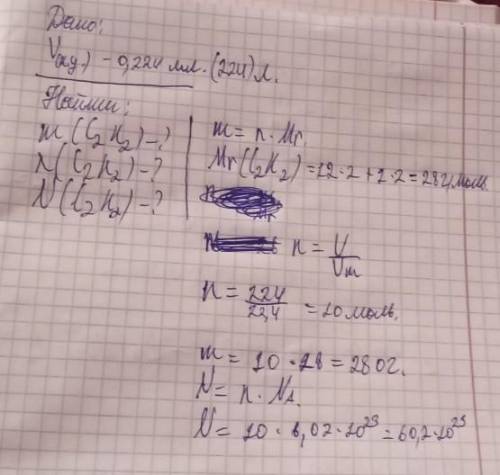 Дано:
V(н.у.) - 0,224 мл. (224) л.
Найти:
m (C₂H₂) - ?
n (C₂H₂) - ?
N (C₂H₂) - ?
m = n · Mr.
Mr (C₂H₂) = 12 · 2 + 2 · 2 = 28 г/моль.
n = V/Vm
n = 224/22,4 = 10 моль.
m = 10 · 28 = 280 г.
N = n · NA.
N = 10 · 6,02 · 10²³ = 60,2 · 10²³